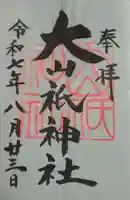 奉拝
大山祇神社
令和七年八月廿三日